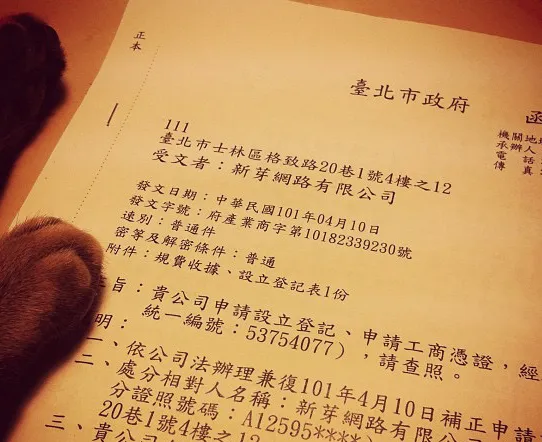 正本
臺北市政府 函
機關地
承辦人
電 話
傳 真
111
臺北市士林區格致路20巷1號4樓之12
受文者：新芽網路有限公司
發文日期：中華民國101年04月10日
發文字號：府產業商字第10182339230號
速別：普通件
密等及解密條件：普通
附件：規費收據、設立登記表1份
旨：貴公司申請設立登記、申請工商憑證，經
統一編號：53754077），請查照。
明：
一、依公司法辦理兼復101年4月10日補正申請
二、處分相對人名稱：新芽網路有限公
分證照號碼：A12595****
20巷1號4樓之12
三、貴公